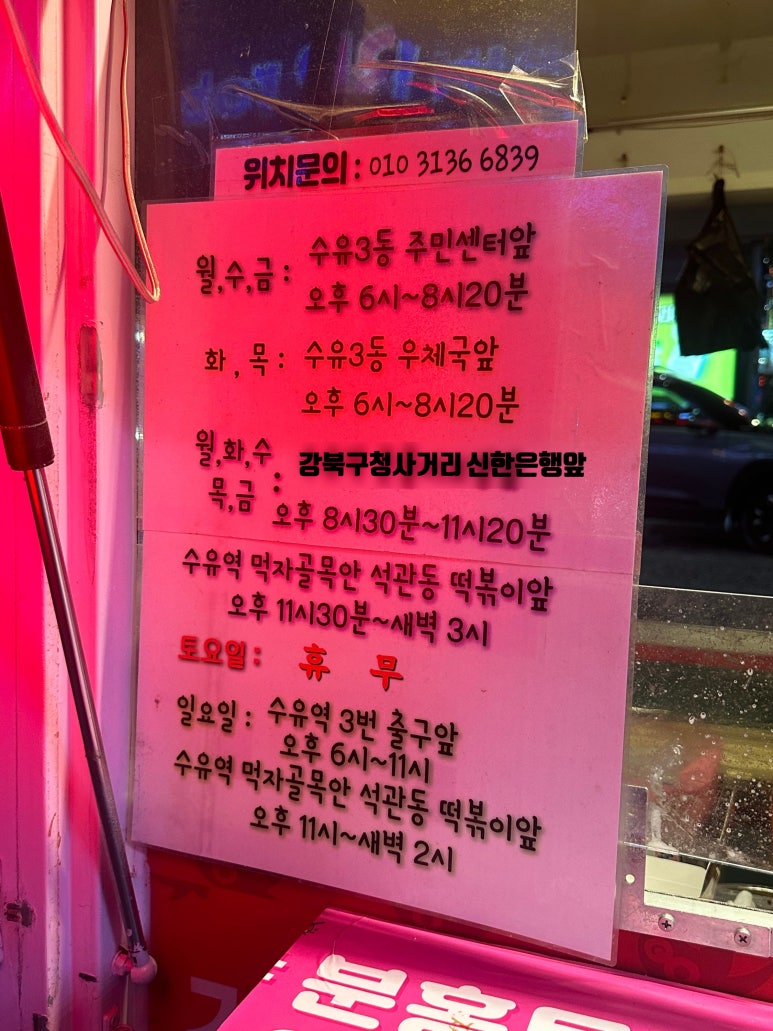 위치문의 : 010 3136 6839
월,수,금 : 수유3동 주민센터앞
오후 6시~8시20분
화 , 목 : 수유3동 우체국앞
오후 6시~8시20분
월,화,수
목,금 : 강북구청사거리 신한은행앞
오후 8시30분~11시20분
수유역 먹자골목안 석관동 떡볶이앞
오후 11시30분~새벽 3시
토요일 : 휴 무
일요일 : 수유역 3번 출구앞
오후 6시~11시
수유역 먹자골목안 석관동 떡볶이앞
오후 11시~새벽 2시